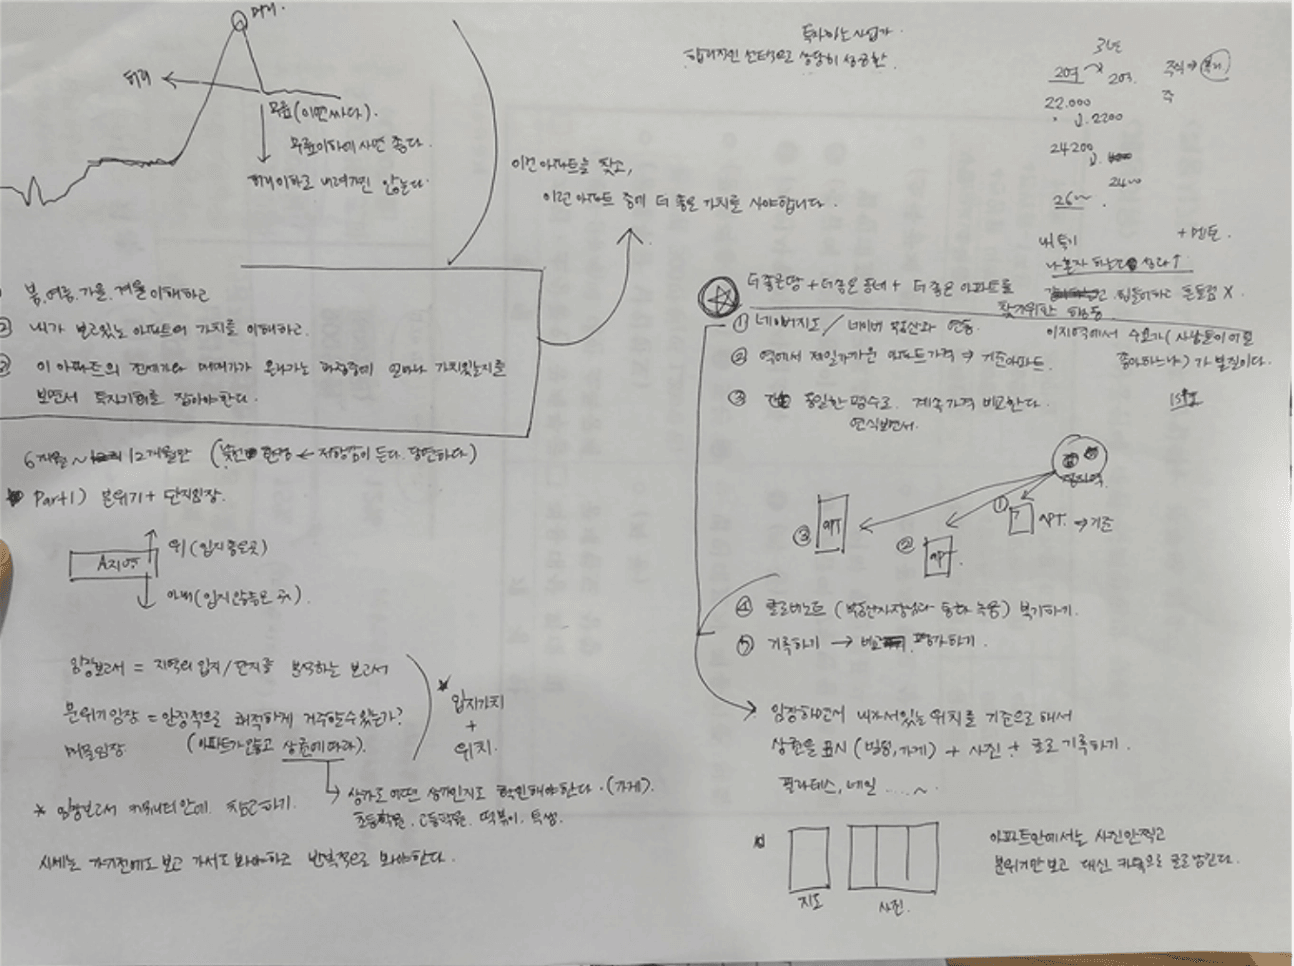 머리.
허리
무릎(이면싸다).
무릎이하에사면 좋다.
허리이하로 내려가면 않는다.
이런 아파트를 찾고,
이런아파트 중에 더 좋은 가치를 사야합니다.
봄,여름,가을,겨울 이해하고
② 내가 보고있는 아파트의 가치를 이해하고.
이 아파트의 전세가와 매매가가 올라가는 과정중에 얼마나 가치있는지를
보면서 투자기회를 잡아야한다.
6개월~ 12개월만 ( 현장 ← 저항감이 든다. 당연하다)
Part1) 분위기 + 단지임장.
A지역
위(입지좋은곳)
아래(입지않좋은 곳).
임장보고서 = 지역의 입지/단지를 분석하는 보고서
분위기임장 = 안정적으로 쾌적하게 거주할수있는가?
매물임장 (아파트가않고 상권에따라).
입지가치
+
위치.
→ 상가도 어떤 상가인지도 확인해야한다.(가게).
초등학원, 고등학원, 떡볶이,
* 임장보고서 커뮤니티안에 참고하기.
시세는 가기전에도 보고 가서도 봐야하고 반복적으로 봐야한다.
투자하는사업가
합리적인 선택으로 상당히 성공한
20억 → 20억.
주식 ⇒
주
22.000
2200
24200
2400
26~.
+멘토.
더좋은땅 + 더좋은동네 + 더 좋은 아파트를
찾기위한 활동
힘들어하고 돈도럼 X.
① 네이버지도 / 네이버 부동산과 연동.
이지역에서 수요가(사람들이 이곳
좋아하느냐)가 본질이다.
② 역에서 제일가까운 아파트가격 ⇒ 기준아파트.
③ 동일한평수로 계속가격비교한다.
연식보면서.
① APT. ⇒ 기준
② apt
③ apt
④ 클로바노트 (부동산사장님과 통화 녹음) 복기하기.
⑤ 기록하기 → 평가하기.
임장하면서 내가서있는 위치를 기준으로해서
상권을 표시 (병원,가게) + 사진 + 글로 기록하기.
필라테스, 네일 .... ~
지도
사진.
아파트안에서는 사진안찍고
분위기만보고 대신 카톡으로 글로남긴다.